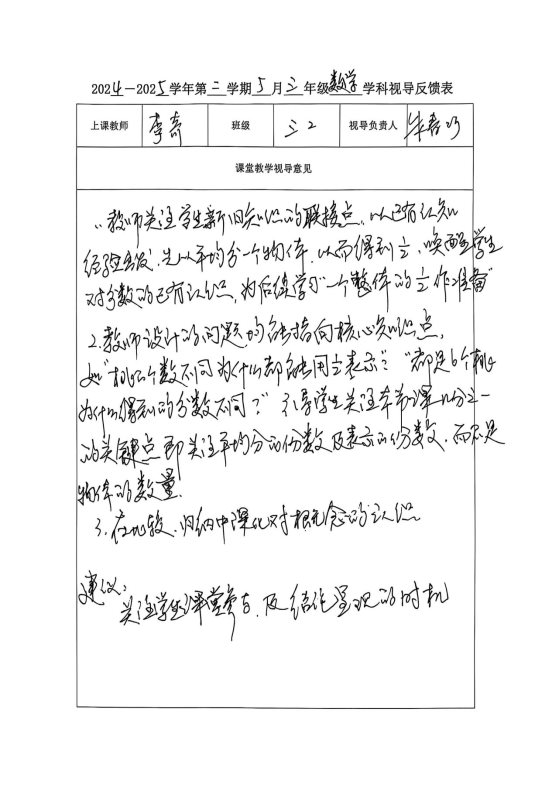 2024-2025学年第二学期5月三年级数学学科视导反馈表
上课教师 李奇 班级 三2 视导负责人
课堂教学视导意见
1.教师关注学生新旧知识的联接点，以已有认知
经验出发，先从平均分一个物体，从而得到½，唤醒学生
对分数的已有认识，为后续学习"一个整体"的½作准备
2.教师设计的问题均能指向核心知识点，
如"桃的个数不同为什么都能用½表示？""都是6个桃
为什么得到的分数不同？"引导学生关注本节课几分之一
的关键点即关注平均分的份数及表示的份数，而不是
物体的数量.
3.在比较、归纳中深化对概念的认识
建议：
关注学生课堂参与，及结论呈现的时机